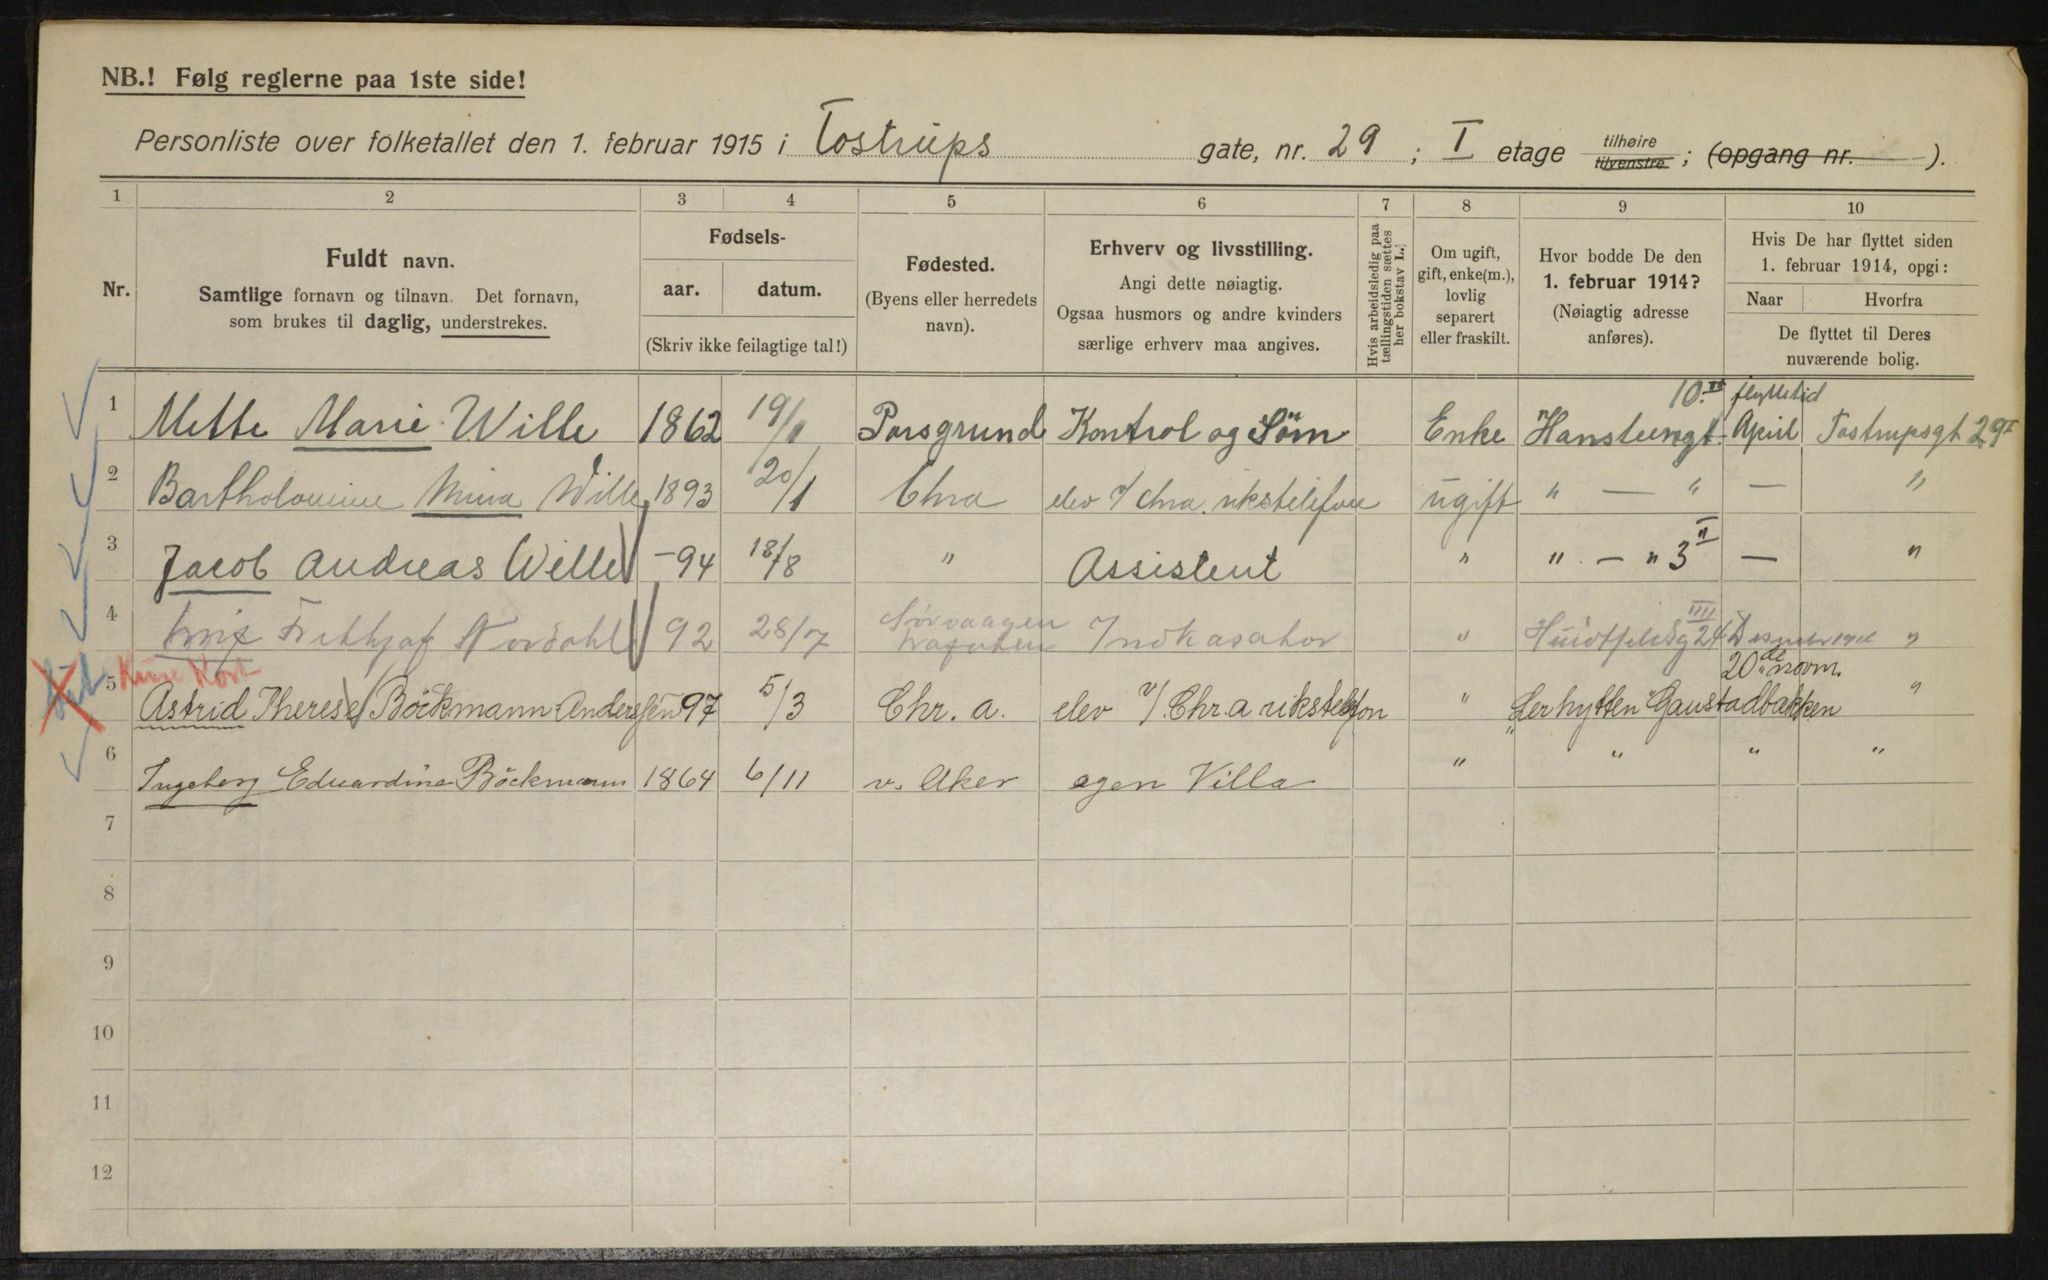 NB.! Følg reglerne paa 1ste side!
Personliste over folketallet den 1. februar 1915 i Tostrups gate, nr. 29 ; I etage tilhøire tilvenstre ; (opgang nr. ).
1 2 3 4 5 6 7 8 9 10
Nr.
Fuldt navn.
Samtlige fornavn og tilnavn. Det fornavn,
som brukes til daglig, understrekes.
Fødsels-
aar. datum.
(Skriv ikke feilagtige tal!)
Fødested.
(Byens eller herredets
navn).
Erhverv og livsstilling.
Angi dette nøiagtig.
Ogsaa husmors og andre kvinders
særlige erhverv maa angives.
Hvis arbeidsledig paa
tællingstiden sættes
her bokstav L.
Om ugift,
gift, enke(m.),
lovlig
separert
eller fraskilt.
Hvor bodde De den
1. februar 1914?
(Nøiagtig adresse
anføres).
Hvis De har flyttet siden
1. februar 1914, opgi:
Naar Hvorfra
De flyttet til Deres
nuværende bolig.
10. II flyttetid
1 Mette Marie Wille 1862 19/1 Porsgrund Kontrol og Søm Enke April Tostrupsgt 29 I
2 Bartholomine Mina Wille 1893 20/1 Chra elev v/ Chra. rikstelefon ugift " — " — "
3 Jacob Andreas Wille - 94 18/8 " Assistent " " — " 3 II — "
4 Frithjof Nordahl 92 28/7 Indkasator " 24 IIII "
Kuse Kort
20de novm.
5 Astrid Therese Böckmann-Anderssen 97 5/3 Chr. a. elev v/ Chr. a rikstelefon " Gaustadbakken "
6 Ingeborg Eduardine Böckmann 1864 6/11 v. Aker egen Villa " " " "
7
8
9
10
11
12